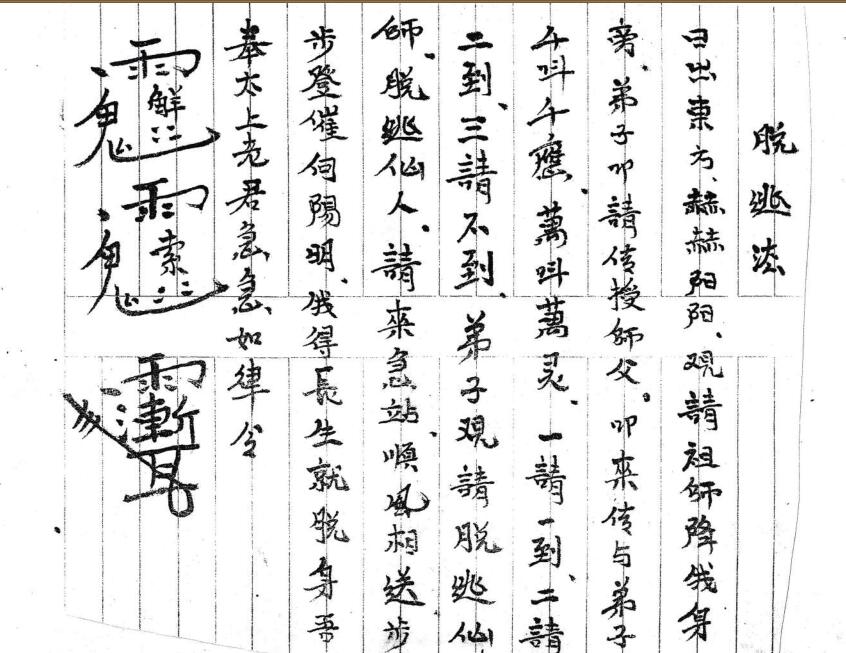 脱逃法
日出東方、赫赫阳阳、观請祖师降我身
旁、弟子叩請传授师父。叩來传与弟子
千叫千應、萬叫萬灵、一請一到、二請
二到、三請不到、弟子观請脱逃仙
师、脱逃仙人、請來急站、順风相送步
步登催伺陽明、我得長生就脱身吾
奉太上老君急急如律令